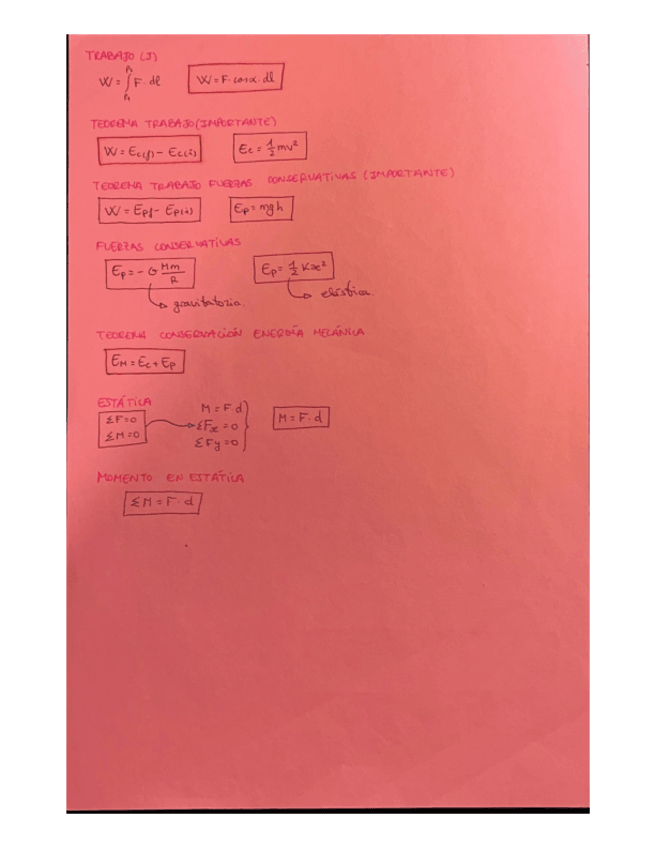 TRABAJO (J)
W = ∫ F · dl   W = F · cosα · dl
TEOREMA TRABAJO (IMPORTANTE)
W = Ec(f) - Ec(i)   Ec = 1/2 mv²
TEOREMA TRABAJO FUERZAS CONSERVATIVAS (IMPORTANTE)
W = Epf - Ep(i)   Ep = mgh
FUERZAS CONSERVATIVAS
Ep = - G Mm/R   Ep = 1/2 Kx²
gravitatoria.   elástica.
TEOREMA CONSERVACIÓN ENERGÍA MECÁNICA
EM = Ec + Ep
ESTÁTICA
ΣF = 0   M = F · d   M = F · d
ΣM = 0   ΣFx = 0
ΣFy = 0
MOMENTO EN ESTÁTICA
ΣM = F · d